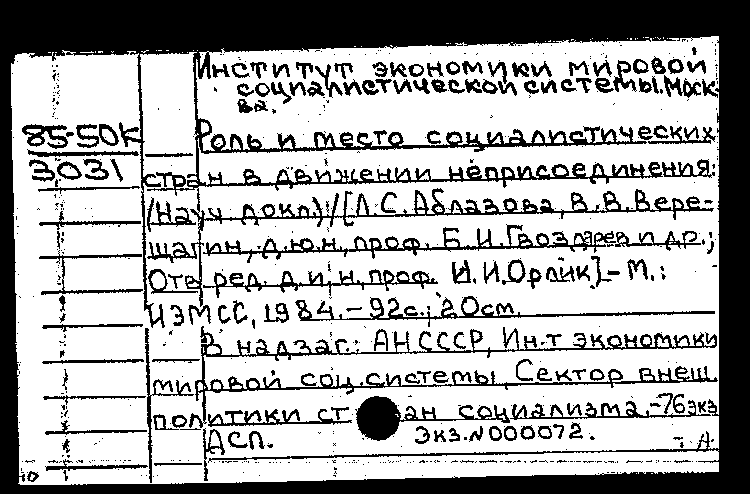 Институт экономики мировой
социалистической системы. Моск-
ва.
85-50к
Роль и место социалистических
3031
стран в движении неприсоединения:
(Науч докл.)/[Л.С.Аблазова, В.В.Вере-
щагин, д.ю.н, проф. Б.И.Гвоздарев и др.;
Отв ред. д.и.н, проф. И.И.Орлик].-М.:
ИЭМСС, 1984.-92с.; 20см.
В надзаг.: АН СССР, Ин-т экономики
мировой соц.системы, Сектор внеш.
политики ст ан социализма.-76экз
АСП. Экз.N000072.
т. А
10